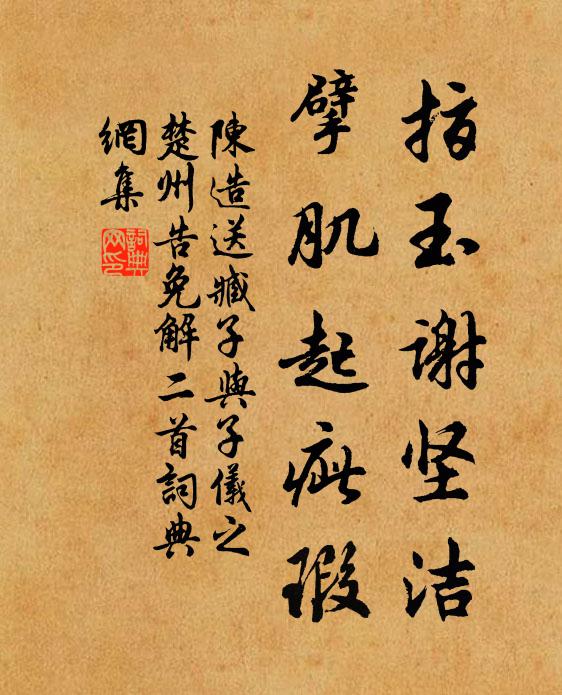 指玉谢坚洁
擘肌起疵瑕
陳造送臧子與子儀之
楚州告免解二首詞典
網集
詞典網印